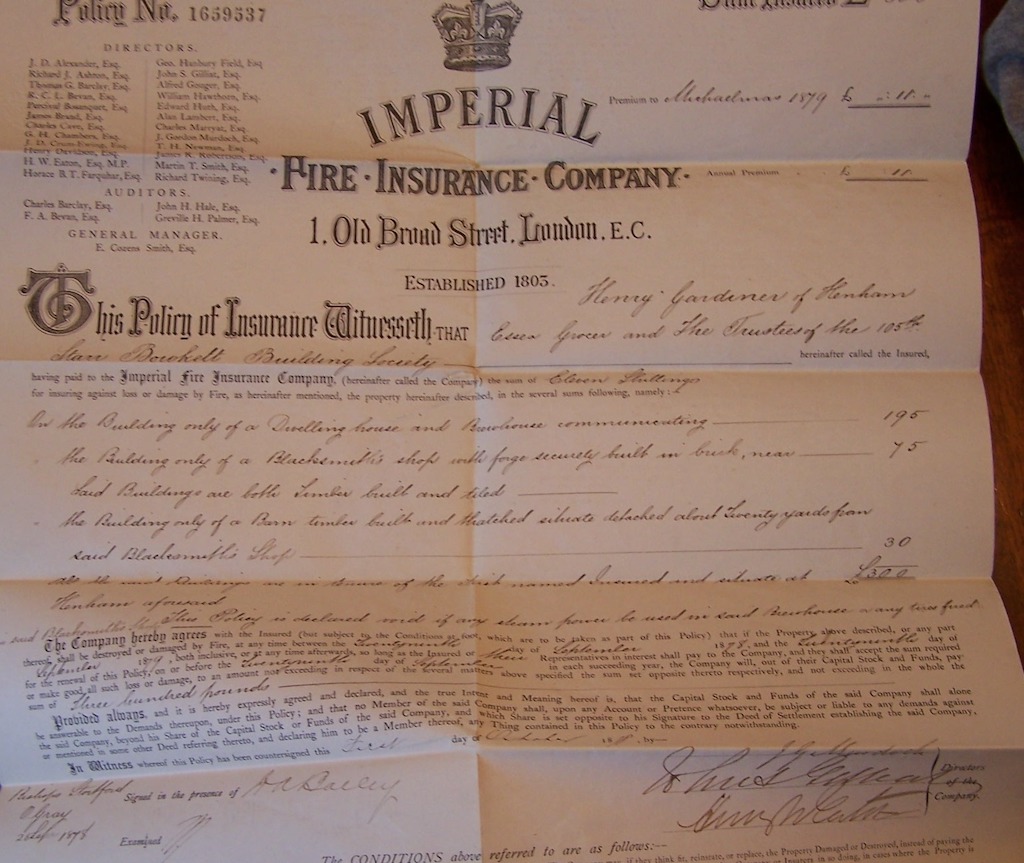 Policy No. 1659537
DIRECTORS.
J. D. Alexander, Esq.
Richard J. Ashton, Esq.
Thomas G. Barclay, Esq.
K. C. L. Bevan, Esq.
Percival Bosanquet, Esq.
James Brand, Esq.
Charles Cave, Esq.
G. H. Chambers, Esq.
J. D. Crum-Ewing, Esq.
Henry Davidson, Esq.
H. W. Eaton, Esq. M.P.
Horace B. T. Farquhar, Esq.
Geo. Hanbury Field, Esq
John S. Gilliat, Esq.
Alfred Gouger, Esq.
William Hawthorn, Esq.
Edward Huth, Esq.
Alan Lambert, Esq.
Charles Marryat, Esq.
J. Gordon Murdoch, Esq.
T. H. Newman, Esq.
James R. Robertson, Esq.
Martin T. Smith, Esq.
Richard Twining, Esq.
AUDITORS.
Charles Barclay, Esq.
F. A. Bevan, Esq.
John H. Hale, Esq.
Greville H. Palmer, Esq.
GENERAL MANAGER.
E. Cozens Smith, Esq.
IMPERIAL
FIRE · INSURANCE · COMPANY ·
1, Old Broad Street, London, E.C.
ESTABLISHED 1803.
Premium to Michaelmas 1879 £ " 11 "
Annual Premium £ " 11 "
This Policy of Insurance Witnesseth THAT Henry Gardiner of Henham
Essex Grocer and The Trustees of the 105th
Starr Bowkett Building Society hereinafter called the Insured,
having paid to the Imperial Fire Insurance Company, (hereinafter called the Company) the sum of Eleven Shillings
for insuring against loss or damage by Fire, as hereinafter mentioned, the property hereinafter described, in the several sums following, namely:
On the Building only of a Dwelling house and Brewhouse communicating 195
the Building only of a Blacksmith's shop with forge securely built in brick, near 75
Said Buildings are both Timber built and tiled
the Building only of a Barn timber built and thatched situate detached about Twenty yards from
said Blacksmith's Shop 30
£300
All the said Buildings are in tenure of the first named Insured and situate at
Henham aforesaid
This Policy is declared void if any steam power be used in said Brewhouse or any tires fired
said Blacksmith's Shop
The Company hereby agrees with the Insured (but subject to the Conditions at foot, which are to be taken as part of this Policy) that if the Property above described, or any part
thereof, shall be destroyed or damaged by Fire, at any time between the Twentyninth day of September 1878, and the Twentyninth day of
September 1879, both inclusive, or at any time afterwards, so long as the Insured or Their Representatives in interest shall pay to the Company, and they shall accept the sum required
for the renewal of this Policy, on or before the Twentyninth day of September in each succeeding year, the Company will, out of their Capital Stock and Funds, pay
or make good all such loss, or damage, to an amount not exceeding in respect of the several matters above specified the sum set opposite thereto respectively, and not exceeding in the whole the
sum of Three hundred pounds
Provided always, and it is hereby expressly agreed and declared, and the true Intent and Meaning hereof is, that the Capital Stock and Funds of the said Company shall alone
be answerable to the Demands thereupon, under this Policy; and that no Member of the said Company shall, upon any Account or Pretence whatsoever, be subject or liable to any demands against
the said Company, beyond his Share of the Capital Stock or Funds of the said Company, and which Share is set opposite to his Signature to the Deed of Settlement establishing the said Company,
or mentioned in some other Deed referring thereto, and declaring him to be a Member thereof, any Thing contained in this Policy to the contrary notwithstanding.
In Witness whereof this Policy has been countersigned this First day of 187 by
Bishops Stortford
Signed in the presence of
1878
Examined
Directors
of the
Company.
The CONDITIONS above referred to are as follows:—